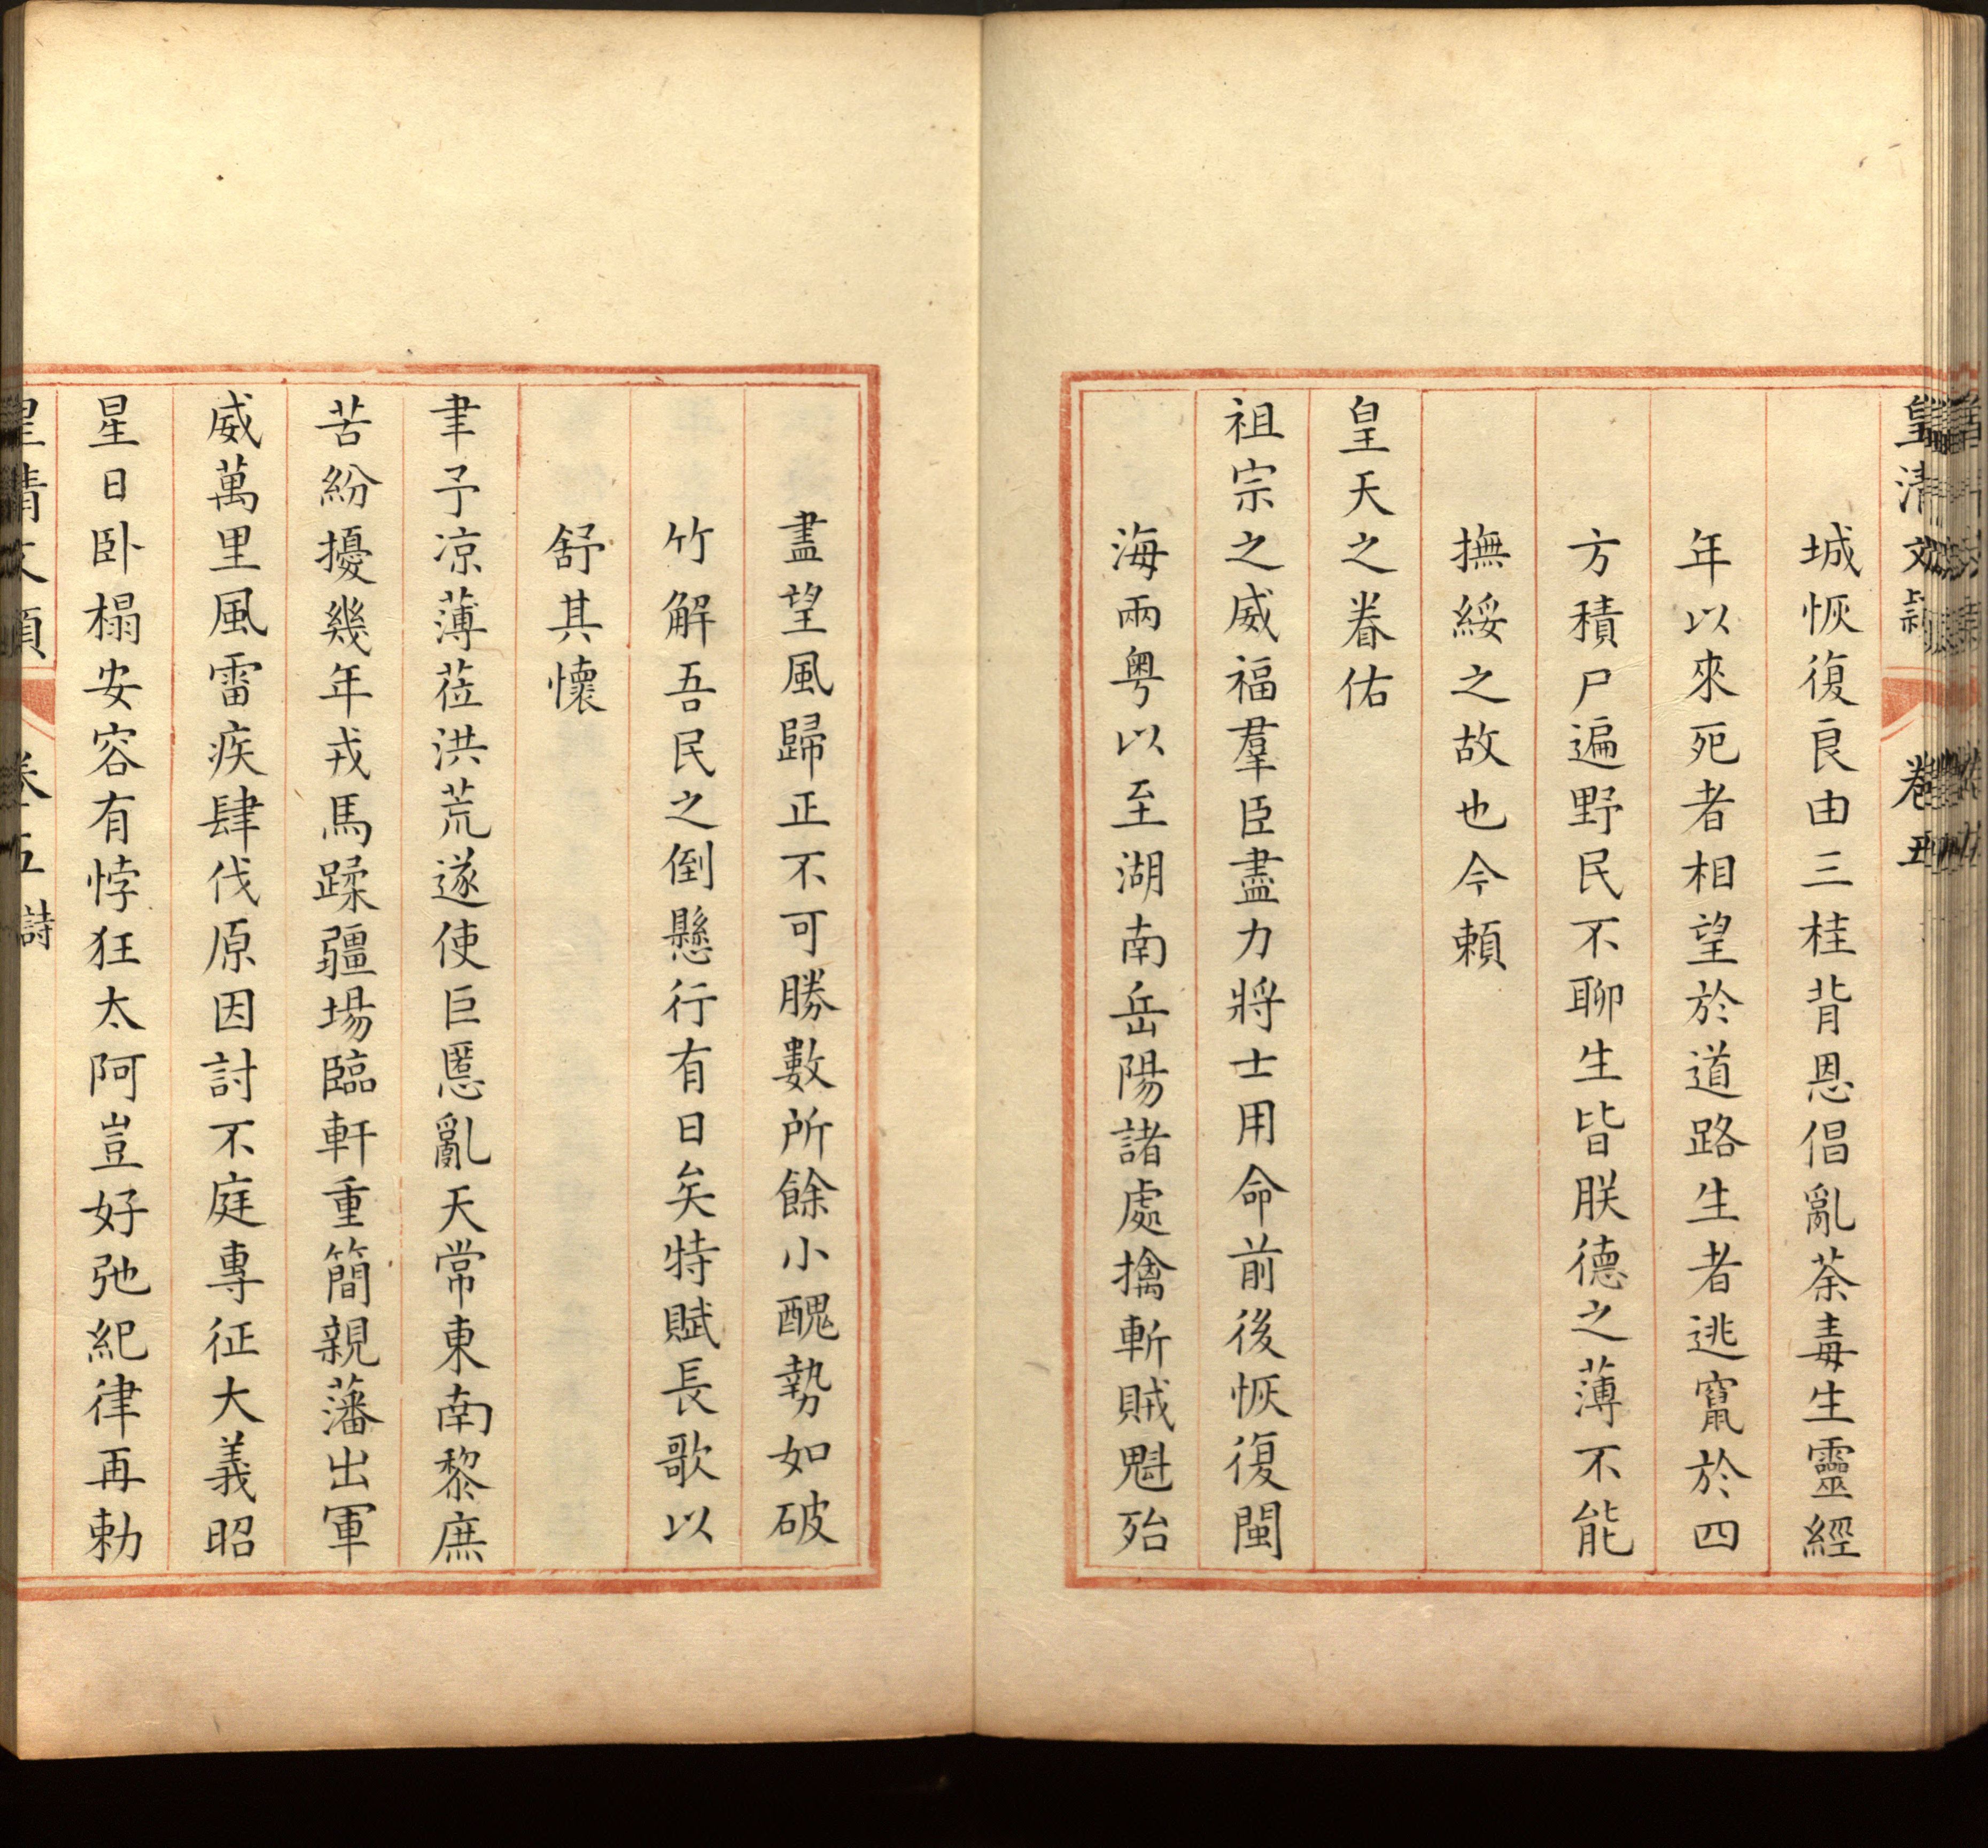 皇清文穎 卷五
城恢復良由三桂背恩倡亂荼毒生靈經
年以來死者相望於道路生者逃竄於四
方積尸遍野民不聊生皆朕德之薄不能
撫綏之故也今賴
皇天之眷佑
祖宗之威福羣臣盡力將士用命前後恢復閩
海兩粤以至湖南岳陽諸處擒斬賊魁殆
盡望風歸正不可勝數所餘小醜勢如破
竹解吾民之倒懸行有日矣特賦長歌以
舒其懷
聿予凉薄莅洪荒遂使巨慝亂天常東南黎庶
苦紛擾幾年戎馬蹂疆場臨軒重簡親藩出軍
威萬里風雷疾肆伐原因討不庭專征大義昭
星日卧榻安容有悖狂太阿豈好弛紀律再勅
皇清文穎 卷五 詩